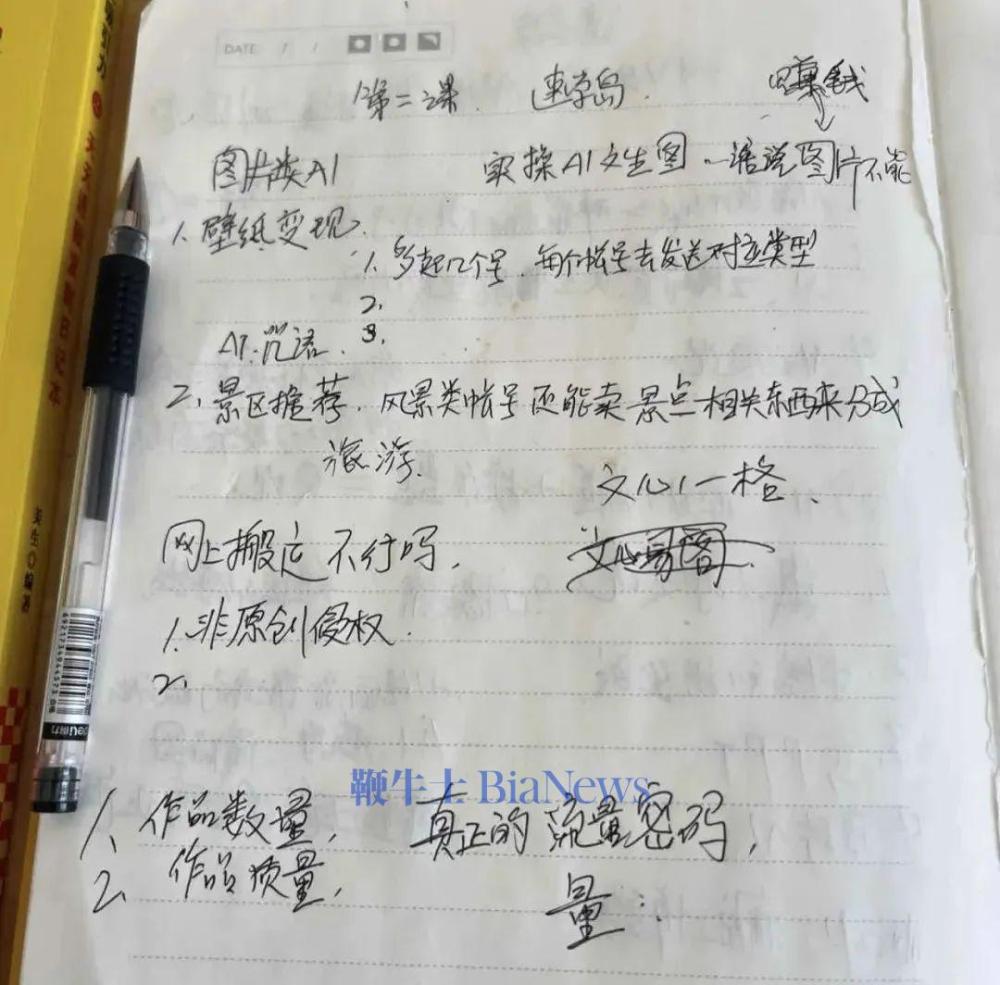 DATE / /
第二课. 速学岛. 赚钱
图片类AI 实操AI文生图 一语说图片不能
1. 壁纸变现.
1. 多起几个号, 每个帐号去发送对应类型
2.
AI:咒语. 3.
2. 景区推荐. 风景类帐号还能卖景点相关东西来分成
旅游.
文心一格.
网上搬运不行吗.
1. 非原创侵权.
2.
鞭牛士 BiaNews
1. 作品数量, 真正的流量密码,
2. 作品质量,
量:
美生◎编著
6921734944573
deli得力